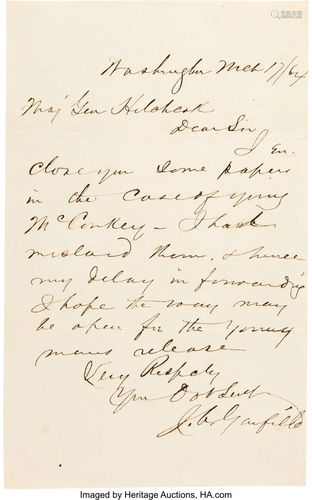 Washington Mch 17/64
Maj Gen Hitchcock
Dear Sir
I En-
close you some papers
in the case of young
McConkey - I had
mislaid them, & hence
my delay in forwarding
I hope the way may
be open for the young
mans release
Very Respcty
Your Obt Servt
J. A. Garfield
Imaged by Heritage Auctions, HA.com